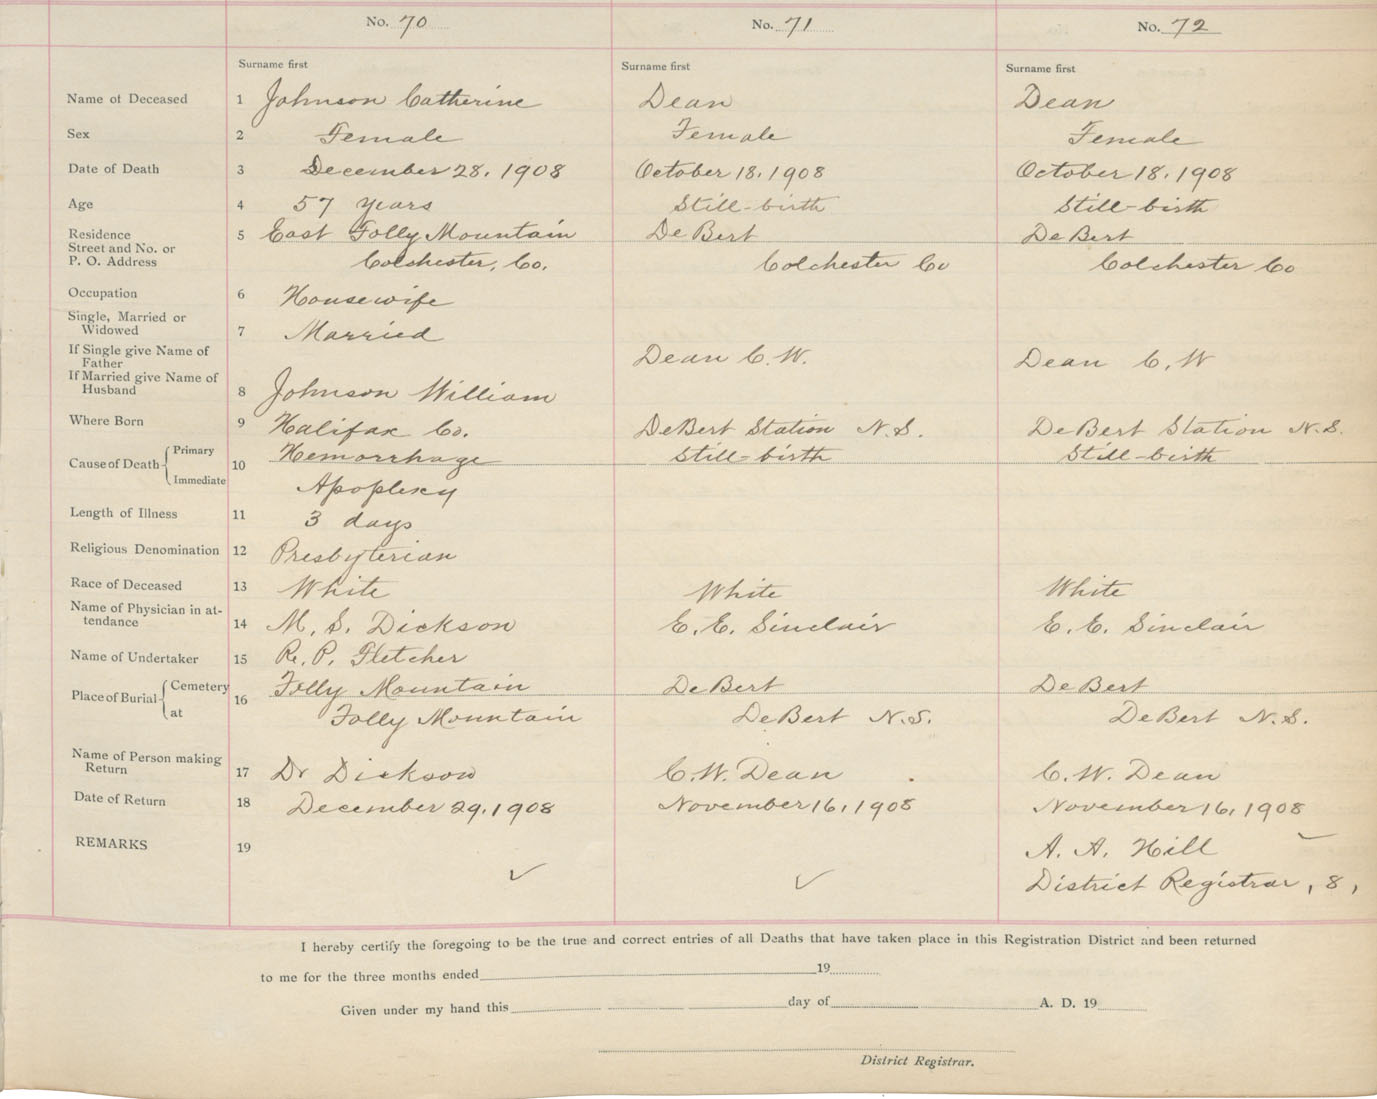 No. 70 No. 71 No. 72
Surname first Surname first Surname first
Name of Deceased 1 Johnson Catherine Dean Dean
Sex 2 Female Female Female
Date of Death 3 December 28, 1908 October 18, 1908 October 18, 1908
Age 4 57 years Still-birth Still-birth
Residence 5 East Folly Mountain DeBert DeBert
Street and No. or
P. O. Address Colchester, Co. Colchester Co Colchester Co
Occupation 6 Housewife
Single, Married or
Widowed 7 Married
If Single give Name of
Father Dean C. W. Dean C. W
If Married give Name of
Husband 8 Johnson William
Where Born 9 Halifax Co. DeBert Station N.S. DeBert Station N.S.
Cause of Death Primary 10 Hemorrhage Still-birth Still-birth
Immediate Apoplexy
Length of Illness 11 3 days
Religious Denomination 12 Presbyterian
Race of Deceased 13 White White White
Name of Physician in at-
tendance 14 M. S. Dickson E. E. Sinclair E. E. Sinclair
Name of Undertaker 15 R. P. Fletcher
Place of Burial Cemetery 16 Folly Mountain DeBert DeBert
at Folly Mountain DeBert N.S. DeBert N.S.
Name of Person making
Return 17 Dr Dickson C. W. Dean C. W. Dean
Date of Return 18 December 29, 1908 November 16, 1908 November 16, 1908
REMARKS 19 A. A. Hill
District Registrar, 8,
I hereby certify the foregoing to be the true and correct entries of all Deaths that have taken place in this Registration District and been returned
to me for the three months ended 19
Given under my hand this day of A. D. 19
District Registrar.